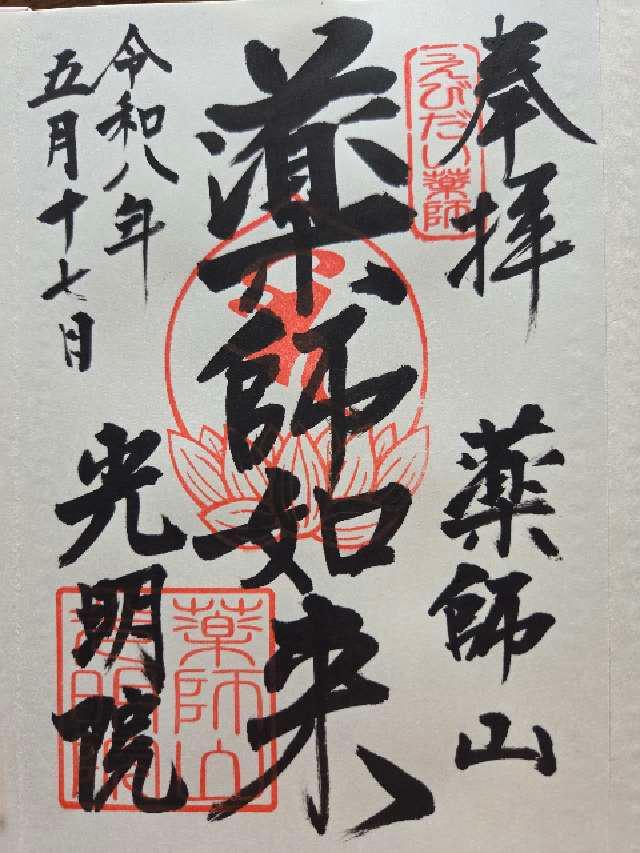 奉拝
薬師山
えびだい薬師
薬師如来
令和八年
五月十七日
光明院
薬師山
光明院